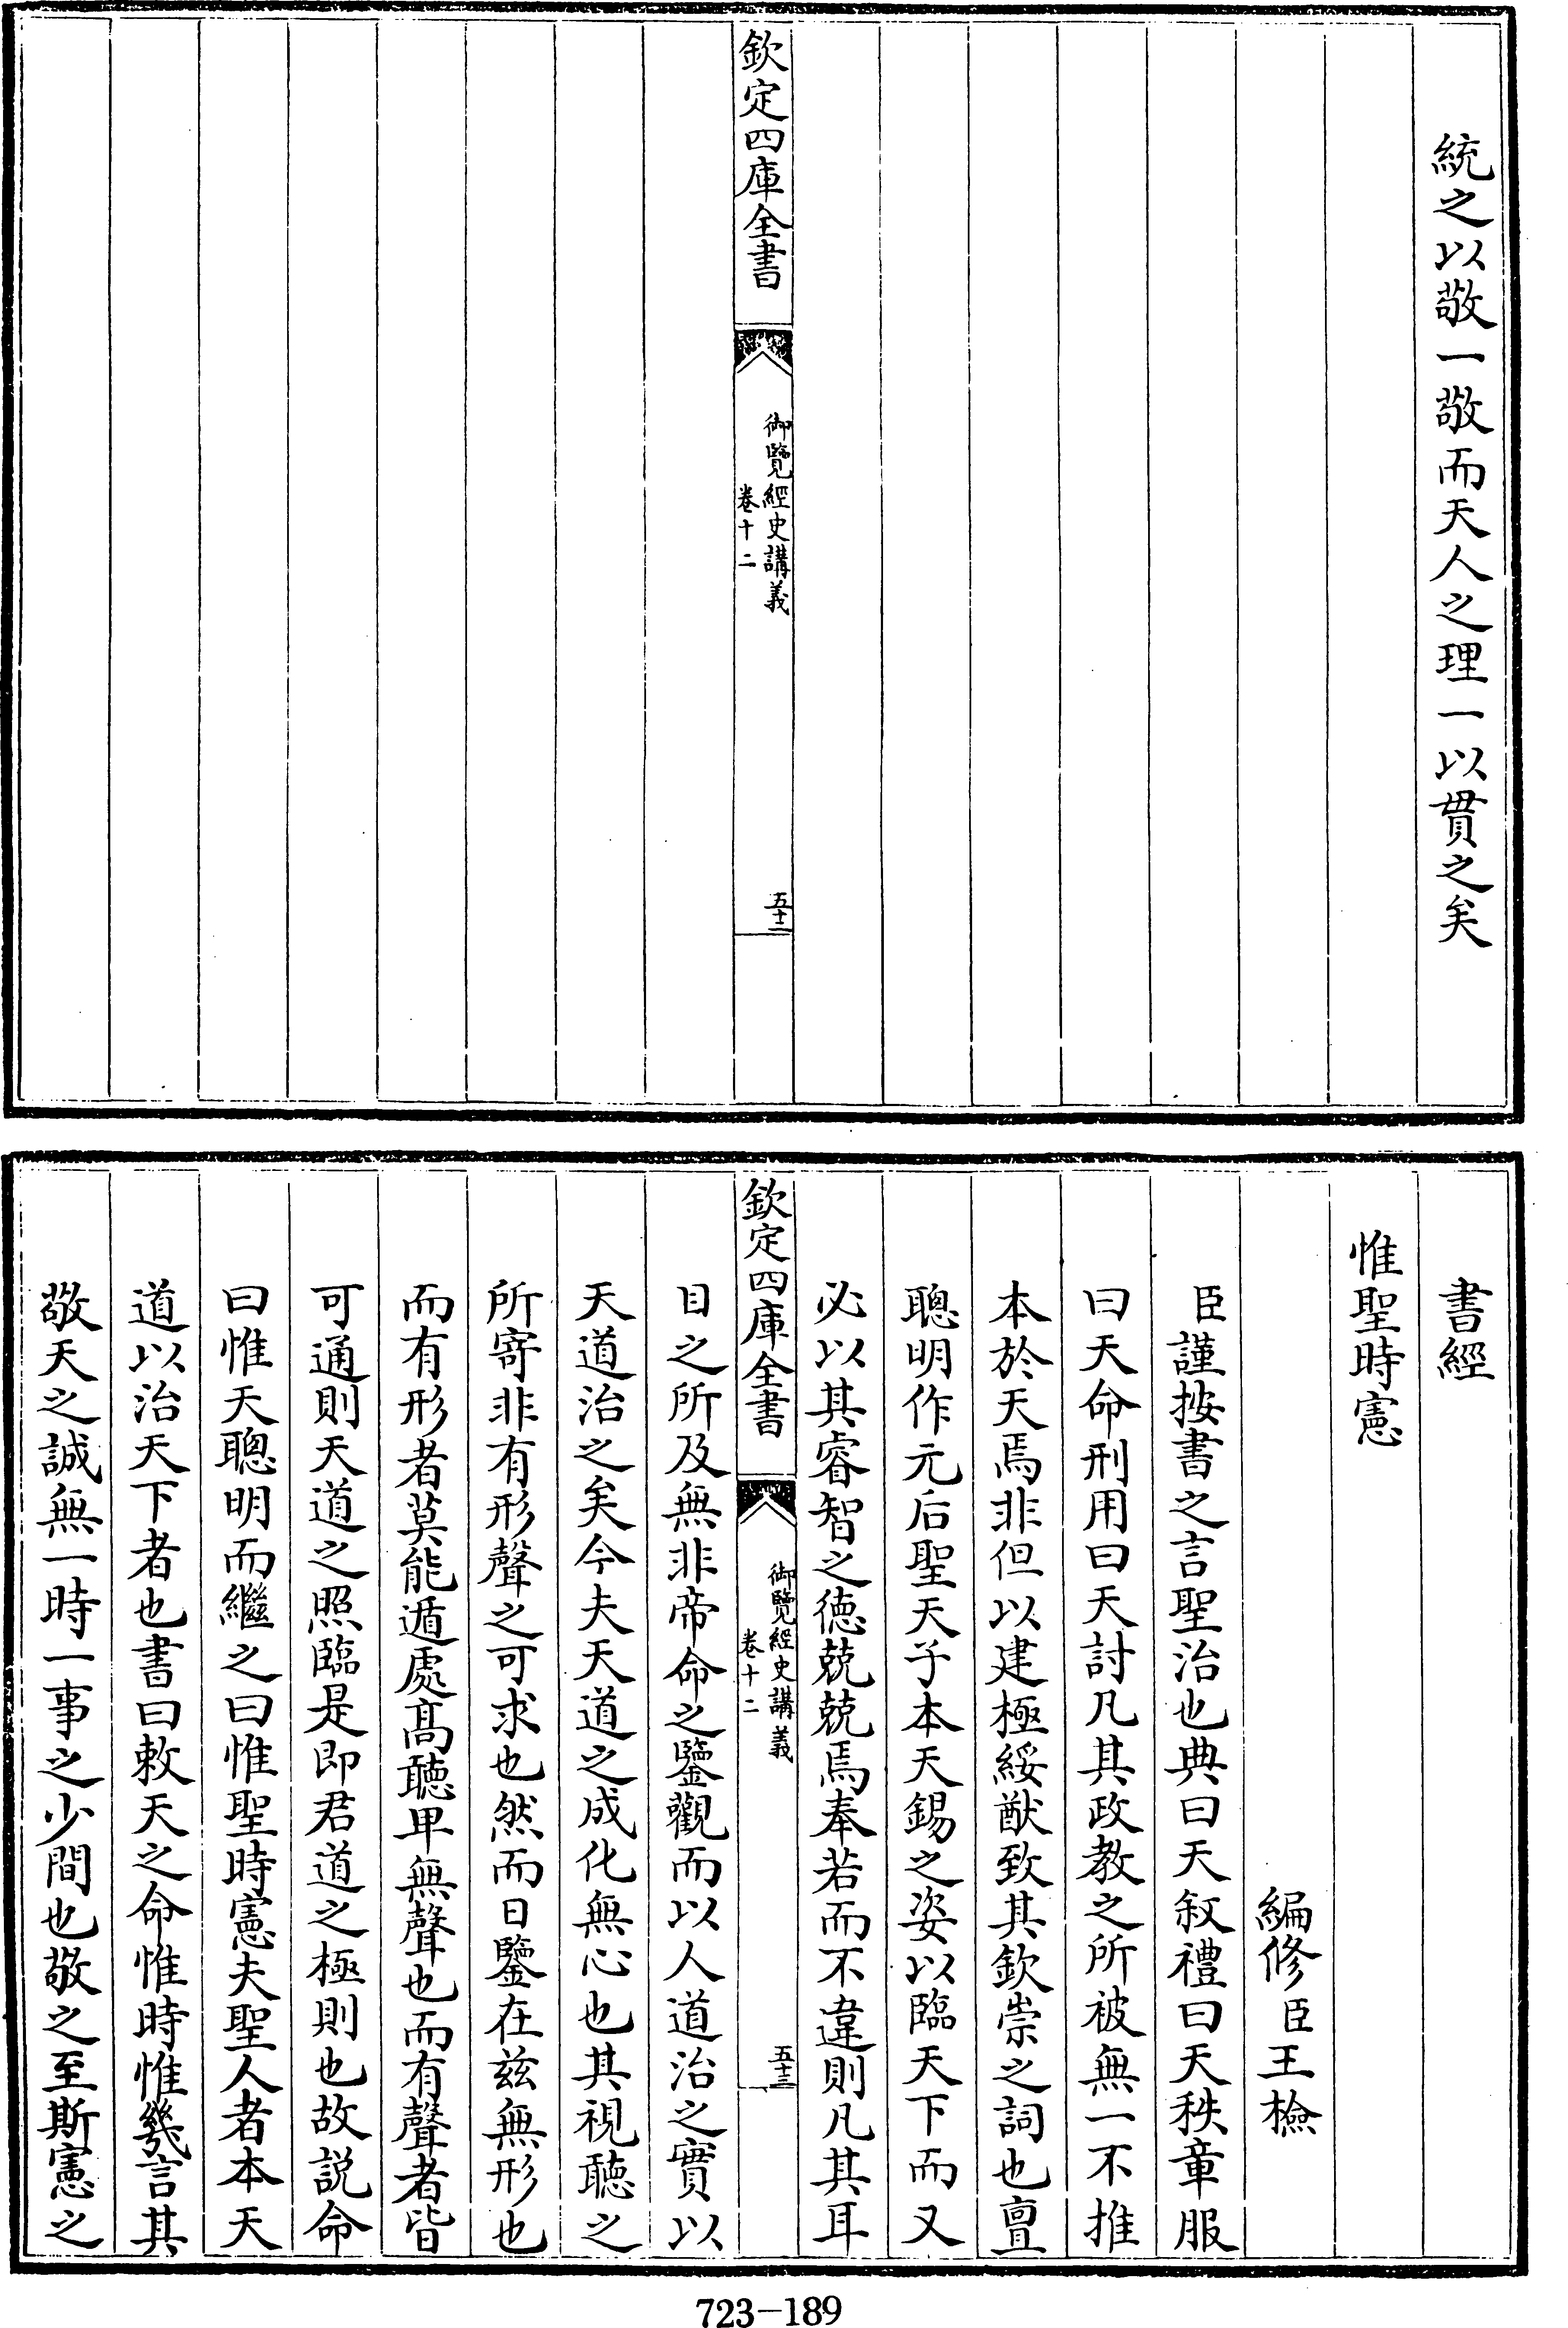 統之以敬一敬而天人之理一以貫之矣
欽定四庫全書
御覽經史講義
卷十二
五十二
書經
惟聖時憲
編修臣王檢
臣謹按書之言聖治也典曰天叙禮曰天秩章服
曰天命刑用曰天討凡其政教之所被無一不推
本於天焉非但以建極綏猷致其欽崇之詞也亶
聰明作元后聖天子本天錫之姿以臨天下而又
必以其睿智之徳兢兢焉奉若而不違則凡其耳
欽定四庫全書
御覽經史講義
卷十二
五十三
目之所及無非帝命之鑒觀而以人道治之實以
天道治之矣今夫天道之成化無心也其視聽之
所寄非有形聲之可求也然而日鑒在兹無形也
而有形者莫能遁處髙聽卑無聲也而有聲者皆
可通則天道之照臨是即君道之極則也故説命
曰惟天聰明而繼之曰惟聖時憲夫聖人者本天
道以治天下者也書曰敕天之命惟時惟幾言其
敬天之誠無一時一事之少間也敬之至斯憲之
723-189